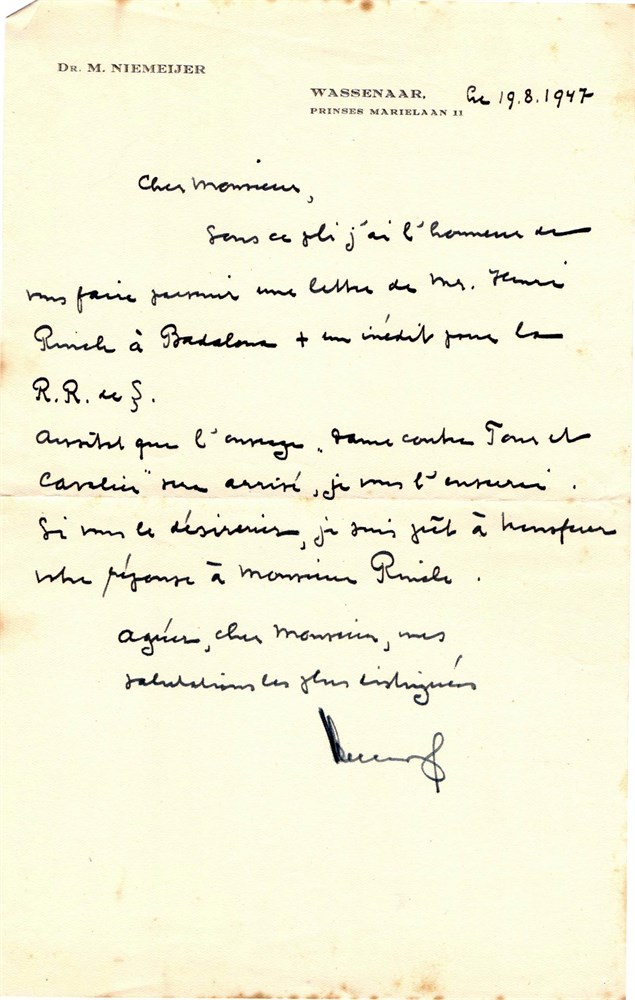 DR. M. NIEMEIJER
WASSENAAR, le 19.8.1947
PRINSES MARIELAAN 11
Cher Monsieur,
Sous ce pli j'ai l'honneur de
vous faire parvenir une lettre de Mr. Henri
Rinck à Badalona + un inédit pour la
R.R. de
Aussitôt que l'ouvrage "Dame contre Tour et
Cavalier" sera arrivé, je vous l'enverrai.
Si vous le désireriez, je suis prêt à transférer
votre réponse à Monsieur Rinck.
Agréez, cher Monsieur, mes
salutations les plus distinguées